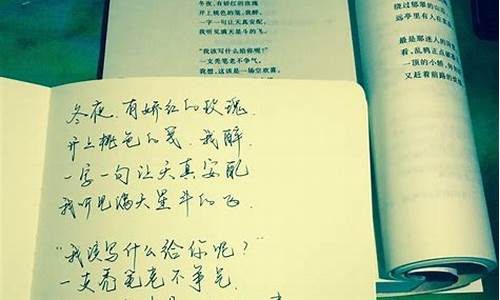 冬夜，有娇红的玫瑰
开上桃色的笺，我醉，
一字一句让天真安配，
我听见满天星斗的飞。
“我该写什么给你呢？”
一支秃笔老不争气。
我想，这该是一场空欢喜，
绕过郁翠的山
远亭里有人在
最是那迷人的
看，乱鸦正点
一顶的小轿，
又赶着前路的
冬夜，有娇红的玫瑰，
开上桃色的笺，我醉，
一字一句让天真安配
我听见满天星斗的飞
“我该写什么给你呢？”
一支秃笔老不争气，